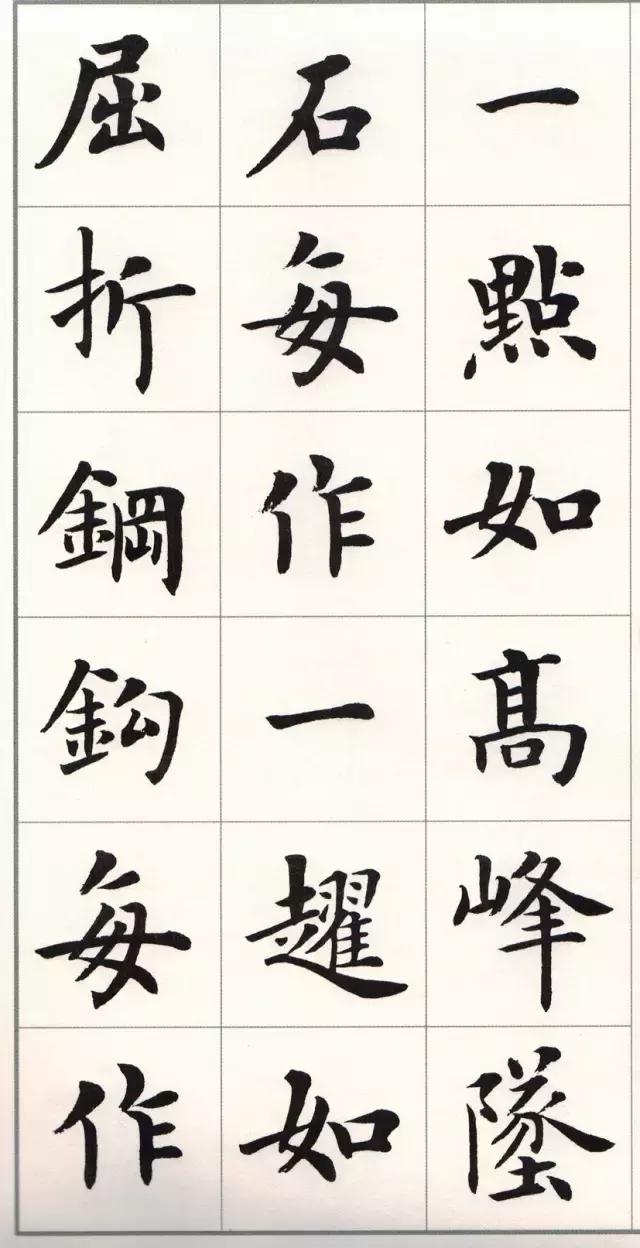 一點如高峰墜
石每作一趯如
屈折鋼鉤每作